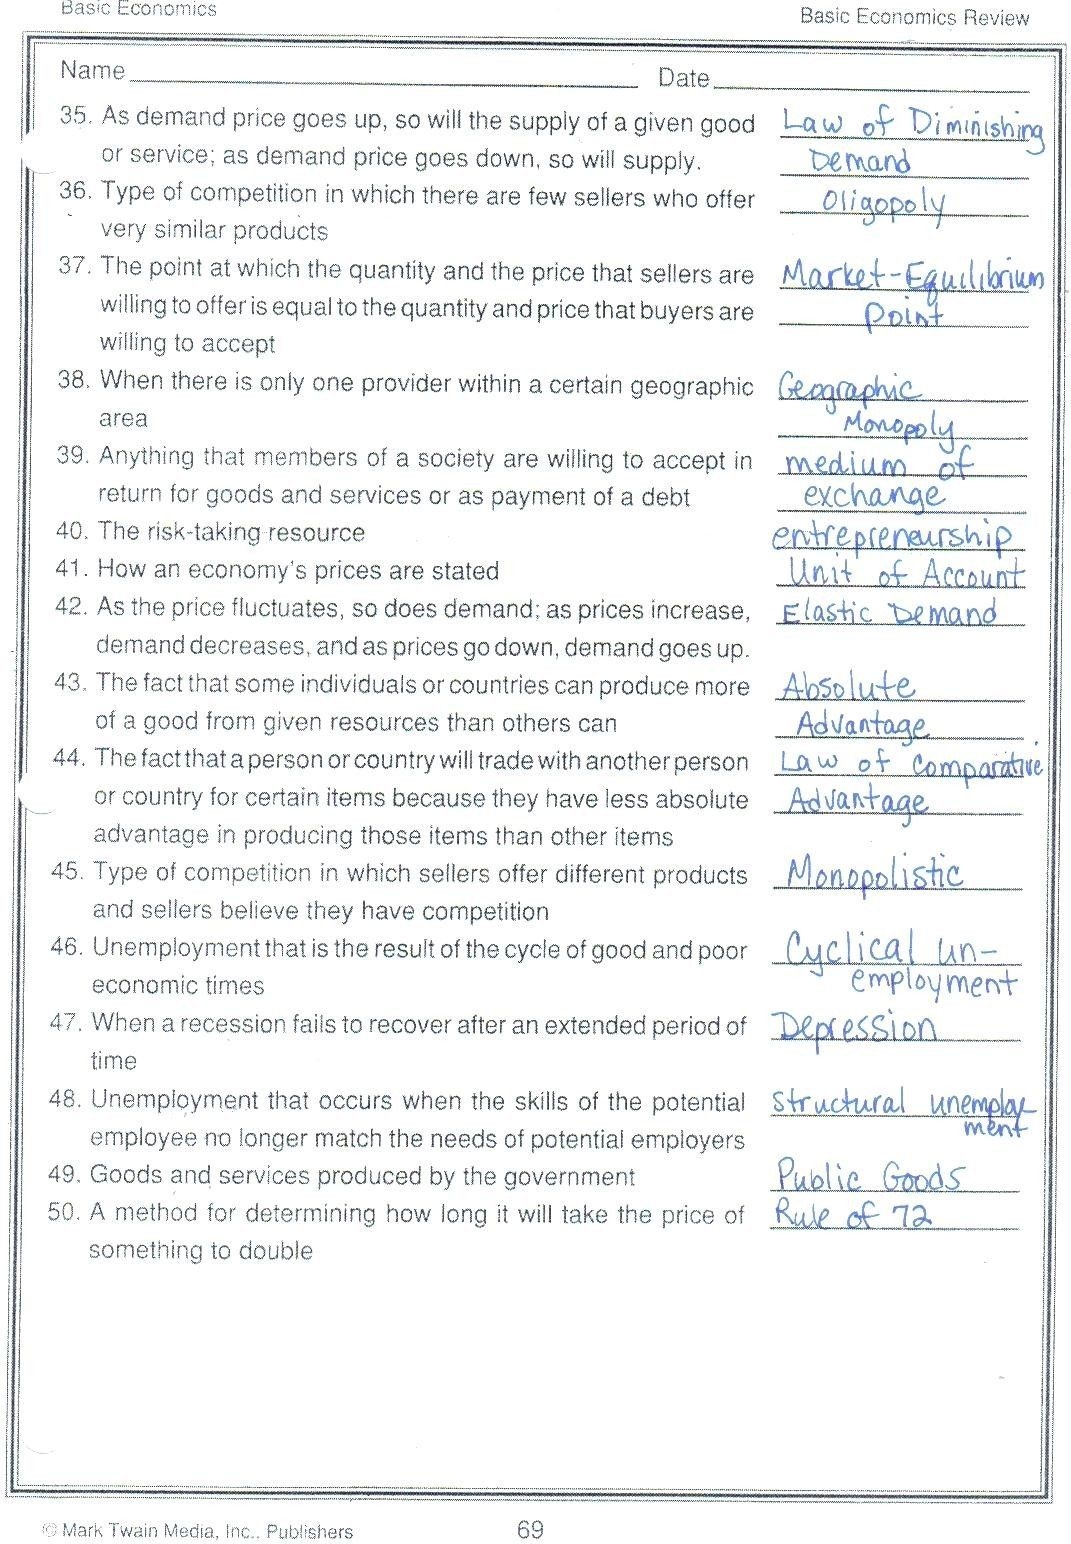 Basic Economics
Basic Economics Review
Name
Date
35. As demand price goes up, so will the supply of a given good Law of Diminishing
or service; as demand price goes down, so will supply. Demand
36. Type of competition in which there are few sellers who offer Oligopoly
very similar products
37. The point at which the quantity and the price that sellers are Market-Equilibrium
willing to offer is equal to the quantity and price that buyers are Point
willing to accept
38. When there is only one provider within a certain geographic Geographic
area Monopoly
39. Anything that members of a society are willing to accept in medium of
return for goods and services or as payment of a debt exchange
40. The risk-taking resource entrepreneurship
41. How an economy's prices are stated Unit of Account
42. As the price fluctuates, so does demand; as prices increase, Elastic Demand
demand decreases, and as prices go down, demand goes up.
43. The fact that some individuals or countries can produce more Absolute
of a good from given resources than others can Advantage
44. The fact that a person or country will trade with another person Law of Comparative
or country for certain items because they have less absolute Advantage
advantage in producing those items than other items
45. Type of competition in which sellers offer different products Monopolistic
and sellers believe they have competition
46. Unemployment that is the result of the cycle of good and poor Cyclical un-
economic times employment
47. When a recession fails to recover after an extended period of Depression
time
48. Unemployment that occurs when the skills of the potential Structural unemploy-
employee no longer match the needs of potential employers ment
49. Goods and services produced by the government Public Goods
50. A method for determining how long it will take the price of Rule of 72
something to double
© Mark Twain Media, Inc., Publishers
69